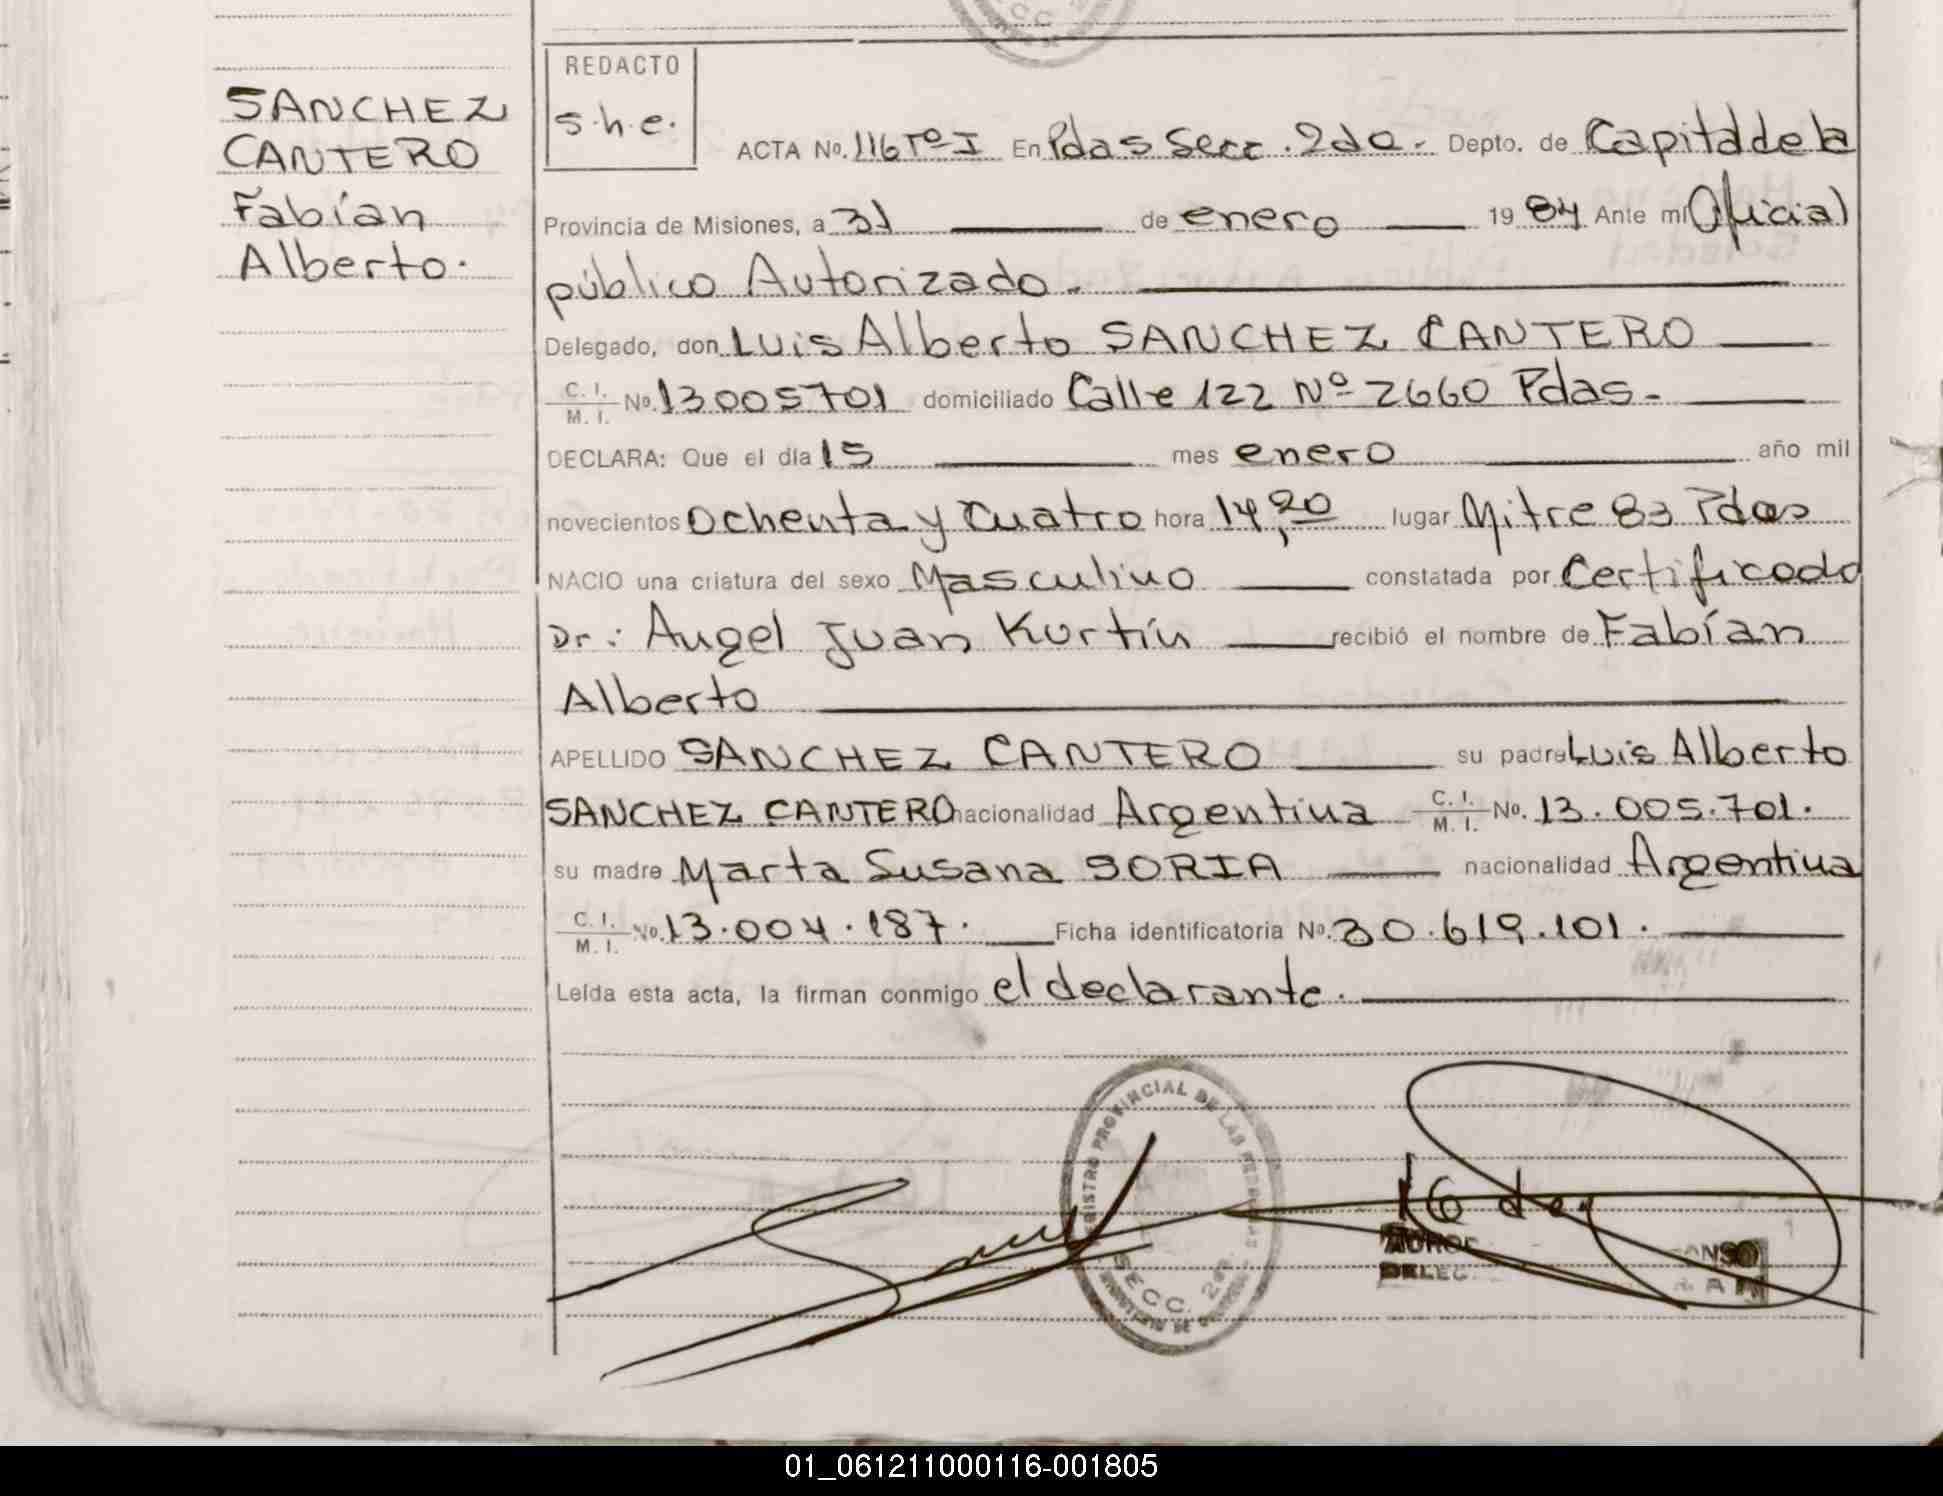 SANCHEZ
CANTERO
Fabían
Alberto.
REDACTO
s.h.e.
ACTA No. 116 Tº I En Pdas Secc. 2da. Depto. de Capital de la
Provincia de Misiones, a 31 de enero 1984 Ante mí Oficial
público Autorizado.
Delegado, don Luis Alberto SANCHEZ CANTERO
C. I. / M. I. No. 13005701 domiciliado Calle 122 Nº 2660 Pdas.
DECLARA: Que el día 15 mes enero año mil
novecientos Ochenta y Cuatro hora 14,20 lugar Mitre 83 Pdas
NACIO una criatura del sexo Masculino constatada por Certificado
Dr: Angel Juan Kurtín recibió el nombre de Fabían
Alberto
APELLIDO SANCHEZ CANTERO su padre Luis Alberto
SANCHEZ CANTERO nacionalidad Argentina C. I. / M. I. No. 13.005.701.
su madre Marta Susana SORIA nacionalidad Argentina
C. I. / M. I. No. 13.004.187. Ficha identificatoria No. 30.619.101.
Leída esta acta, la firman conmigo el declarante.
REGISTRO PROVINCIAL DE LAS PERSONAS
SECC. 2da.
01_061211000116-001805